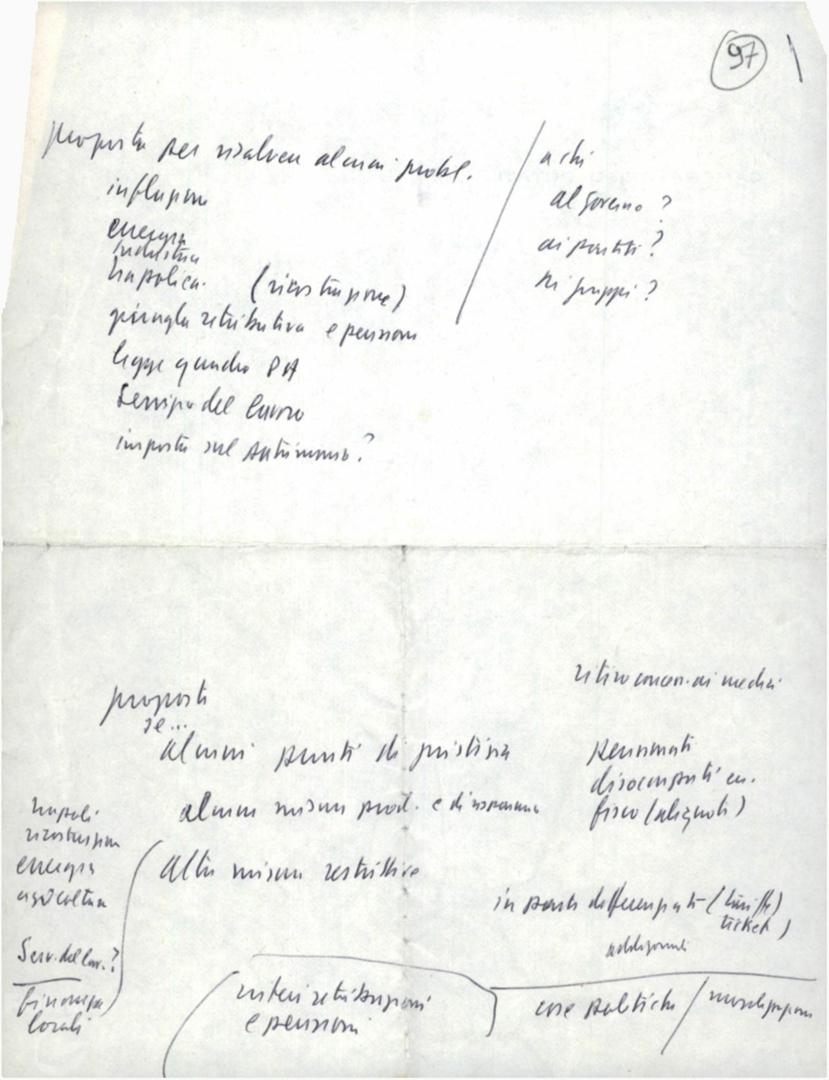 97
proposte per risolvere alcuni probl.
inflazione
energia
industria
napoli ca.
(ricostruzione)
giungla retributiva e pensioni
legge quadro PA
Servizio del lavoro
imposta sul patrimonio?
a chi
al governo?
ai partiti?
ai gruppi?
ritiro concess. ai medici
proposte
se...
alcuni punti di giustizia
pensionati
disoccupati
fisco (aliquote)
alcune misure prod. e di
napoli
ricostruzione
energia
agricoltura
Serv. del lav.?
finanza
locali
altre misure restrittive
in parte differenziati (tariffe)
ticket)
criteri retribuzioni
e pensioni
cose politiche